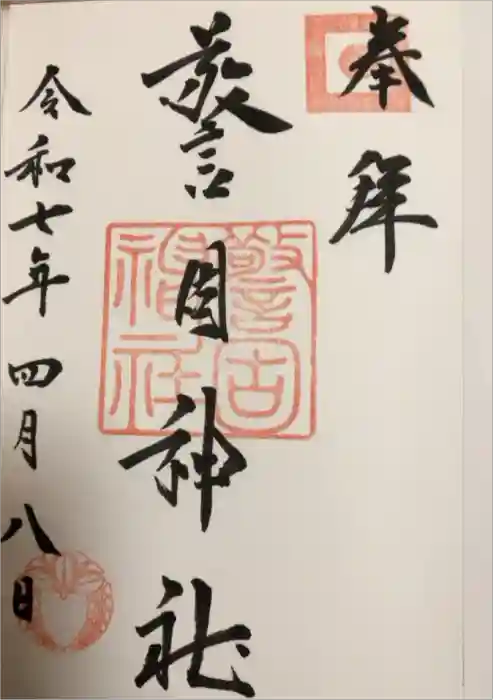 奉拜
警固神社
警固神社
令和七年四月八日